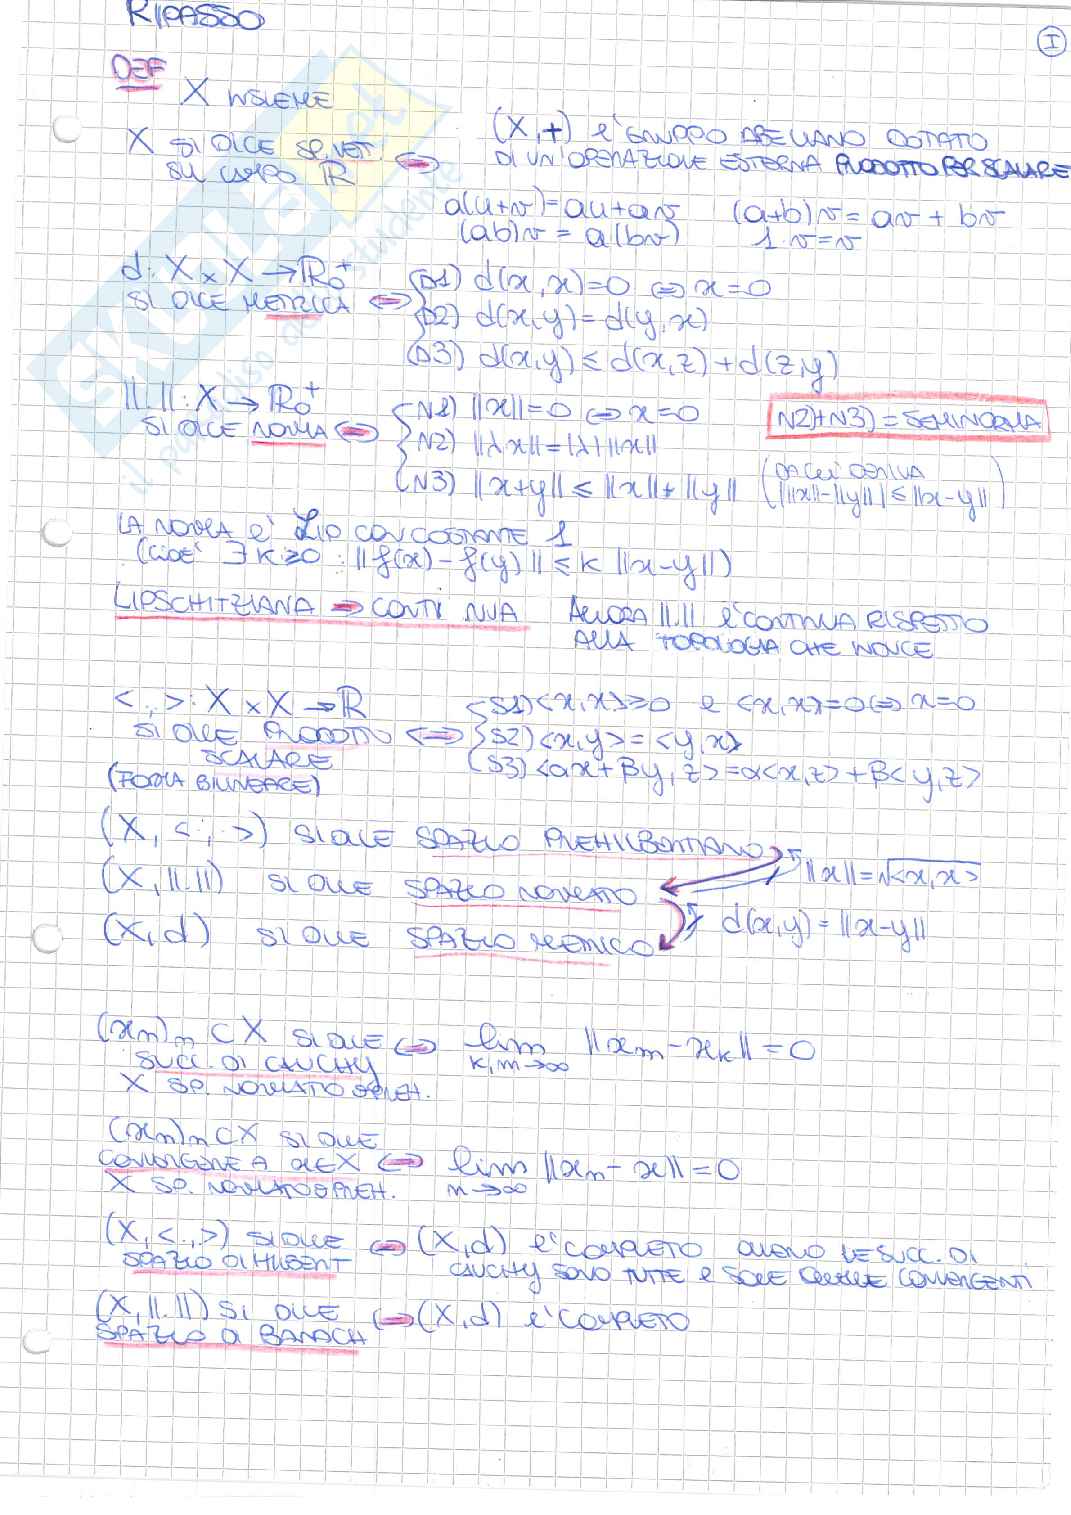 RIPASSO
I
DEF
X INSIEME
X SI DICE SP. VET. SU CORPO ℝ ⇔ (X,+) è GRUPPO ABELIANO DOTATO
DI UN'OPERAZIONE ESTERNA PRODOTTO PER SCALARE
a(u+v)=au+av (a+b)v=av+bv
(ab)v=a(bv) 1·v=v
d: X×X→ℝ₀⁺ SI DICE METRICA ⇔ (D1) d(x,x)=0 ⇔ x=0
(D2) d(x,y)=d(y,x)
(D3) d(x,y)≤d(x,z)+d(z,y)
||.||: X→ℝ₀⁺ SI DICE NORMA ⇔ (N1) ||x||=0 ⇔ x=0
(N2) ||λx||=|λ|||x||
(N3) ||x+y||≤||x||+||y||
N2)+N3)=SEMINORMA
(DA CUI DERIVA
|||x||-||y|||≤||x-y||)
LA NORMA è Lip CON COSTANTE 1
(cioè ∃K≥0 : ||f(x)-f(y)||≤K ||x-y||)
LIPSCHITZIANA ⇒ CONTINUA ALLORA ||.|| è CONTINUA RISPETTO
ALLA TOPOLOGIA CHE INDUCE
<.,.>: X×X→ℝ SI DICE PRODOTTO SCALARE ⇔ (S1) <x,x>≥0 e <x,x>=0⇔x=0
(S2) <x,y>=<y,x>
(S3) <αx+βy,z>=α<x,z>+β<y,z>
(FORMA BILINEARE)
(X,<.,.>) SI DICE SPAZIO PREHILBERTIANO
||x||=√<x,x>
(X,||.||) SI DICE SPAZIO NORMATO
d(x,y)=||x-y||
(X,d) SI DICE SPAZIO METRICO
(xn)n⊂X SI DICE ⇔ lim k,m→∞ ||xm-xk||=0
SUCC. DI CAUCHY
X SP. NORMATO o PREH.
(xn)n⊂X SI DICE
CONVERGENTE A x∈X ⇔ lim n→∞ ||xn-x||=0
X SP. NORMATO o PREH.
(X,<.,.>) SI DICE ⇔ (X,d) è COMPLETO OVVERO LE SUCC. DI
SPAZIO DI HILBERT CAUCHY SONO TUTTE e SOLE QUELLE CONVERGENTI
(X,||.||) SI DICE ⇔ (X,d) è COMPLETO
SPAZIO DI BANACH